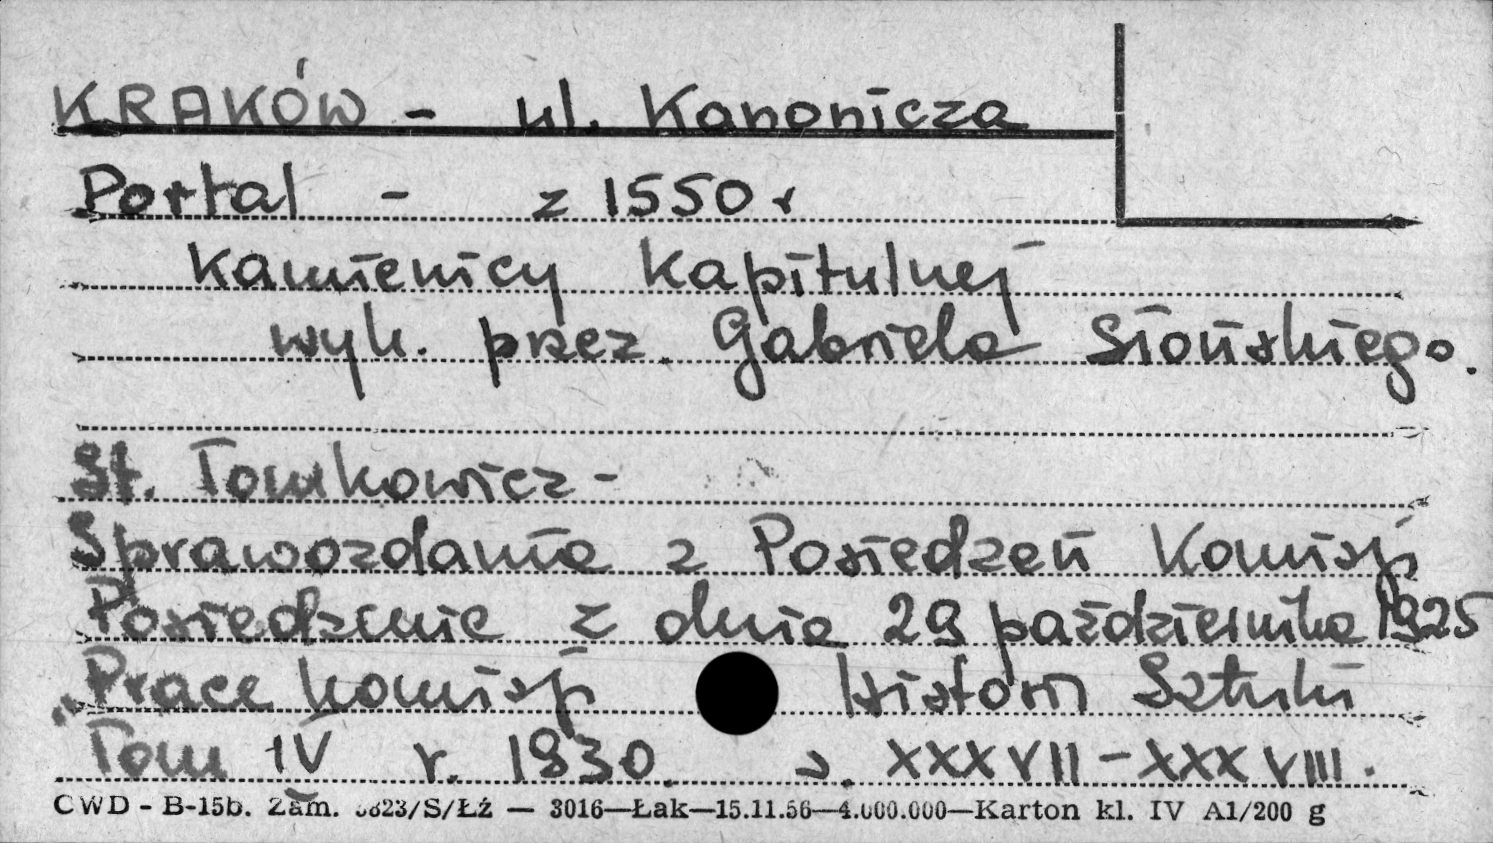 KRAKÓW - ul. Kanonicza
Portal - z 1550 r
Kamienicy Kapitulnej
wyk. przez. Gabriela Słońskiego.
St. Tomkowicz -
Sprawozdania z Posiedzeń Komisji
Posiedzenie z dnia 29 października 1925
"Prace Komisji Historii Sztuki
Tom IV r. 1930. s. XXXVII-XXXVIII.
CWD - B-15b. Zam. 3823/S/Łź — 3016—Łak—15.11.56—4.000.000—Karton kl. IV A1/200 g